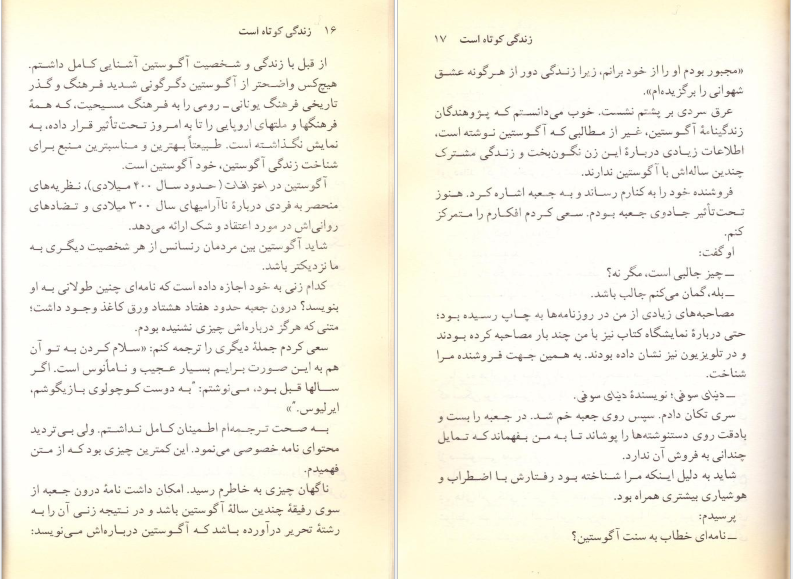 ۱۶ زندگی کوتاه است
از قبل با زندگی و شخصیت آگوستین آشنایی کامل داشتم.
هیچ‌کس واضحتر از آگوستین دگرگونی شدید فرهنگ و گذر
تاریخی فرهنگ یونانی ـ رومی را به فرهنگ مسیحیت، که همهٔ
فرهنگها و ملتهای اروپایی را تا به امروز تحت‌تأثیر قرار داده، به
نمایش نگذاشته است. طبیعتاً بهترین و مناسبترین منبع برای
شناخت زندگی آگوستین، خود آگوستین است.
آگوستین در اعترافات (حدود سال ۴۰۰ میلادی)، نظریه‌های
منحصر به فردی دربارهٔ ناآرامیهای سال ۳۰۰ میلادی و تضادهای
روانی‌اش در مورد اعتقاد و شک ارائه می‌دهد.
شاید آگوستین بین مردمان رنسانس از هر شخصیت دیگری به
ما نزدیکتر باشد.
کدام زنی به خود اجازه داده است که نامه‌ای چنین طولانی به او
بنویسد؟ درون جعبه حدود هفتاد هشتاد ورق کاغذ وجود داشت؛
متنی که هرگز درباره‌اش چیزی نشنیده بودم.
سعی کردم جملهٔ دیگری را ترجمه کنم: «سلام کردن به تو آن
هم به این صورت برایم بسیار عجیب و نامأنوس است. اگر
سالها قبل بود، می‌نوشتم: "به دوست کوچولوی بازیگوشم،
ایرلیوس."»
به صحت ترجمه‌ام اطمینان کامل نداشتم. ولی بی‌تردید
محتوای نامه خصوصی می‌نمود. این کمترین چیزی بود که از متن
فهمیدم.
ناگهان چیزی به خاطرم رسید. امکان داشت نامهٔ درون جعبه از
سوی رفیقهٔ چندین سالهٔ آگوستین باشد و در نتیجه زنی آن را به
رشتهٔ تحریر درآورده باشد که آگوستین درباره‌اش می‌نویسد:
زندگی کوتاه است ۱۷
«مجبور بودم او را از خود برانم، زیرا زندگی دور از هرگونه عشق
شهوانی را برگزیده‌ام».
عرق سردی بر پشتم نشست. خوب می‌دانستم که پژوهندگان
زندگینامهٔ آگوستین، غیر از مطالبی که آگوستین نوشته است،
اطلاعات زیادی دربارهٔ این زن نگون‌بخت و زندگی مشترک
چندین ساله‌اش با آگوستین ندارند.
فروشنده خود را به کنارم رساند و به جعبه اشاره کرد. هنوز
تحت‌تأثیر جادوی جعبه بودم. سعی کردم افکارم را متمرکز
کنم.
او گفت:
ــ چیز جالبی است، مگر نه؟
ــ بله، گمان می‌کنم جالب باشد.
مصاحبه‌های زیادی از من در روزنامه‌ها به چاپ رسیده بود؛
حتی دربارهٔ نمایشگاه کتاب نیز با من چند بار مصاحبه کرده بودند
و در تلویزیون نیز نشان داده بودند. به همین جهت فروشنده مرا
شناخت.
ــ دنیای سوفی؛ نویسندهٔ دنیای سوفی.
سری تکان دادم. سپس روی جعبه خم شد. در جعبه را بست و
بادقت روی دستنوشته‌ها را پوشاند تا به من بفهماند که تمایل
چندانی به فروش آن ندارد.
شاید به دلیل اینکه مرا شناخته بود رفتارش با اضطراب و
هوشیاری بیشتری همراه بود.
پرسیدم:
ــ نامه‌ای خطاب به سنت آگوستین؟